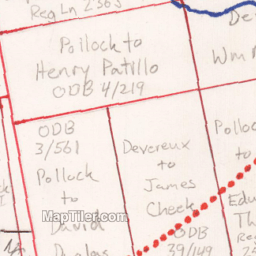 Reg Ln 2363
De
Pollock to
Henry Patillo
ODB 4/219
Wm
ODB
3/561
Pollock
to
David
Devereux
to
James
Cheek
ODB
39/149
Polloc
to
Edu
Th
Re
MapTiler.com